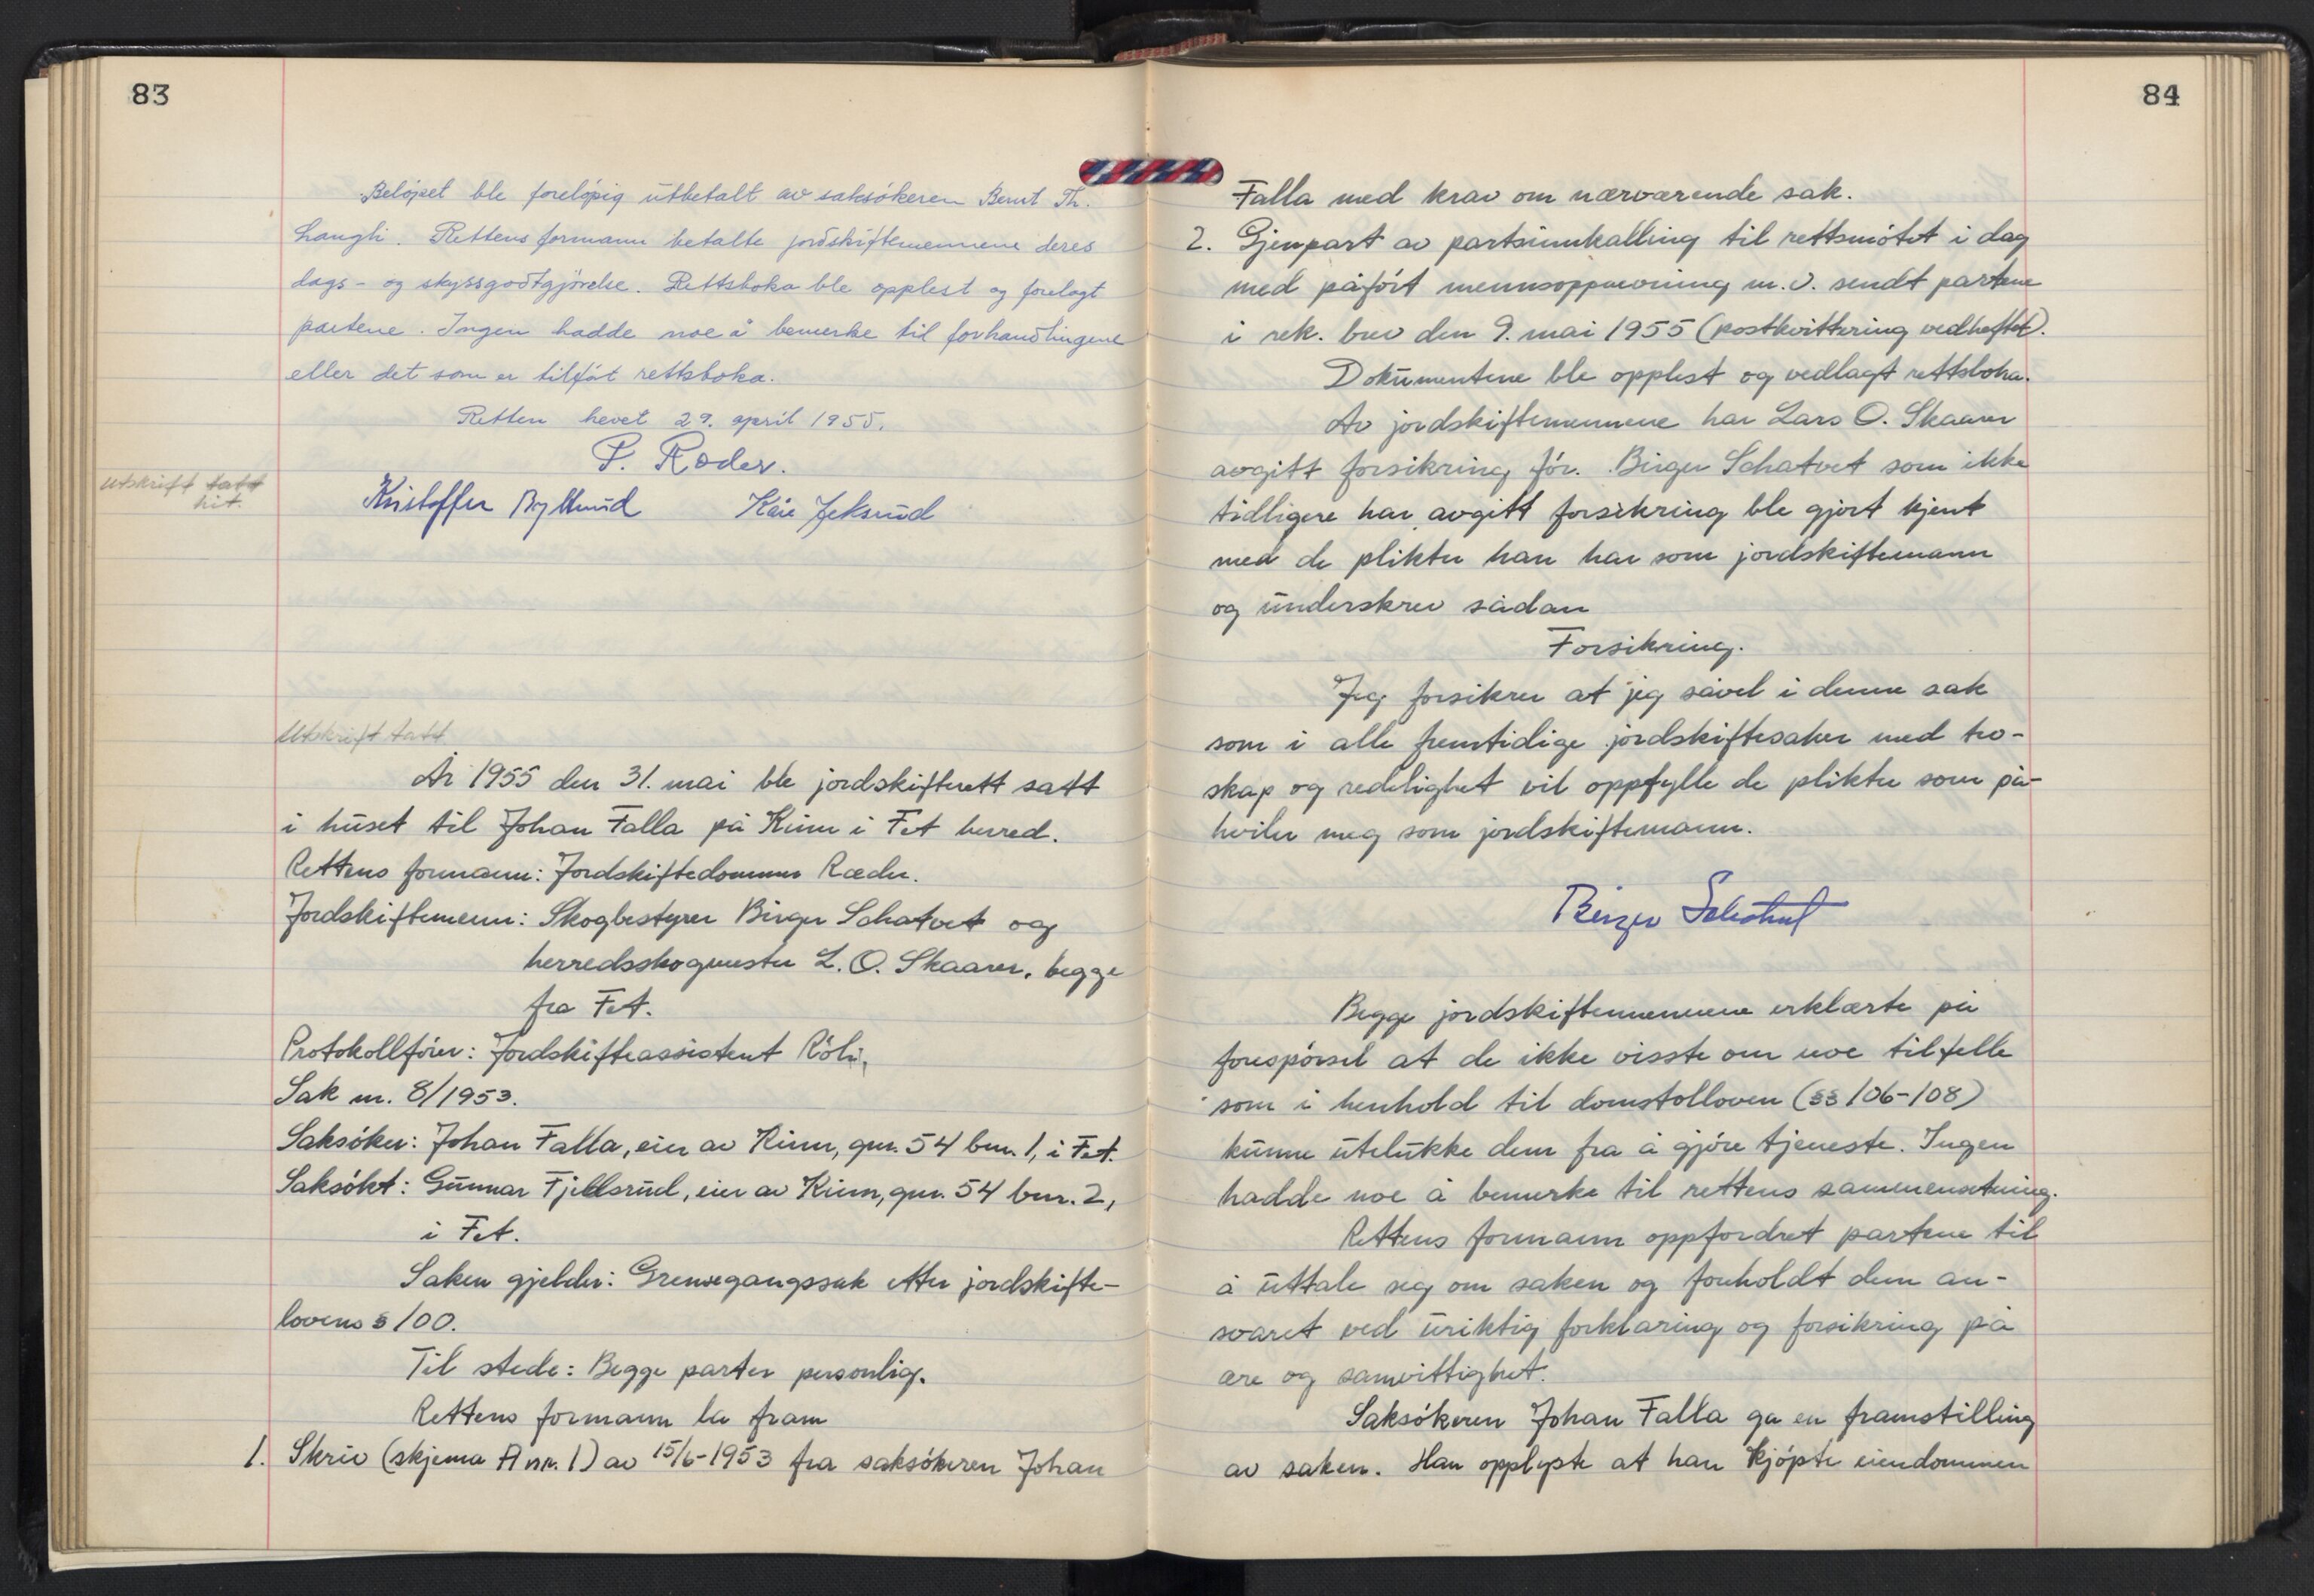 83
Beløpet ble foreløpig utbetalt av saksøkeren Bernt Th.
Langli. Rettens formann betalte jordskiftemennene deres
dags- og skyssgodtgjørelse. Rettsboka ble opplest og forelagt
partene. Ingen hadde noe å bemerke til forhandlingene
eller det som er tilført rettsboka.
Retten hevet 29. april 1955.
P. Ræder.
utskrift tatt
hit.
Kristoffer Kåre Jeksrud
Utskrift tatt
År 1955 den 31. mai ble jordskifterett satt
i huset til Johan Falla på Kinn i Fet herred.
Rettens formann: Jordskiftedommer Ræder.
Jordskiftemenn: Skogbestyrer Birger Schatvet og
herredsskogmester L. O. Skaarer, begge
fra Fet.
Protokollfører: Jordskifteassistent Röli.
Sak nr. 8/1953.
Saksøker: Johan Falla, eier av Kinn, gnr. 54 bnr. 1, i Fet.
Saksøkt: Gunnar Fjellsrud, eier av Kinn, gnr. 54 bnr. 2,
i Fet.
Saken gjelder: Grensegangssak etter jordskifte-
lovens § 100.
Til stede: Begge parter personlig.
Rettens formann la fram
1. Skriv (skjema A nr. 1) av 15/6-1953 fra saksøkeren Johan
84
Falla med krav om nærværende sak.
2. Gjenpart av partsinnkalling til rettsmøtet i dag
med påført mennsoppnevning m.v. sendt partene
i rek. brev den 9. mai 1955 (postkvittering vedheftet).
Dokumentene ble opplest og vedlagt rettsboka.
Av jordskiftemennene har Lars O. Skaarer
avgitt forsikring før. Birger Schatvet som ikke
tidligere har avgitt forsikring ble gjort kjent
med de plikter han har som jordskiftemann
og underskrev sådan
Forsikring.
Jeg forsikrer at jeg såvel i denne sak
som i alle fremtidige jordskiftesaker med tro-
skap og redelighet vil oppfylle de plikter som på-
hviler meg som jordskiftemann.
Birger Schatvet
Begge jordskiftemennene erklærte på
forespørsel at de ikke visste om noe tilfelle
som i henhold til domstolloven (§§ 106-108)
kunne utelukke dem fra å gjøre tjeneste. Ingen
hadde noe å bemerke til rettens sammensetning.
Rettens formann oppfordret partene til
å uttale seg om saken og foreholdt dem an-
svaret ved uriktig forklaring og forsikring på
ære og samvittighet.
Saksøkeren Johan Falla ga en framstilling
av saken. Han opplyste at han kjøpte eiendommen